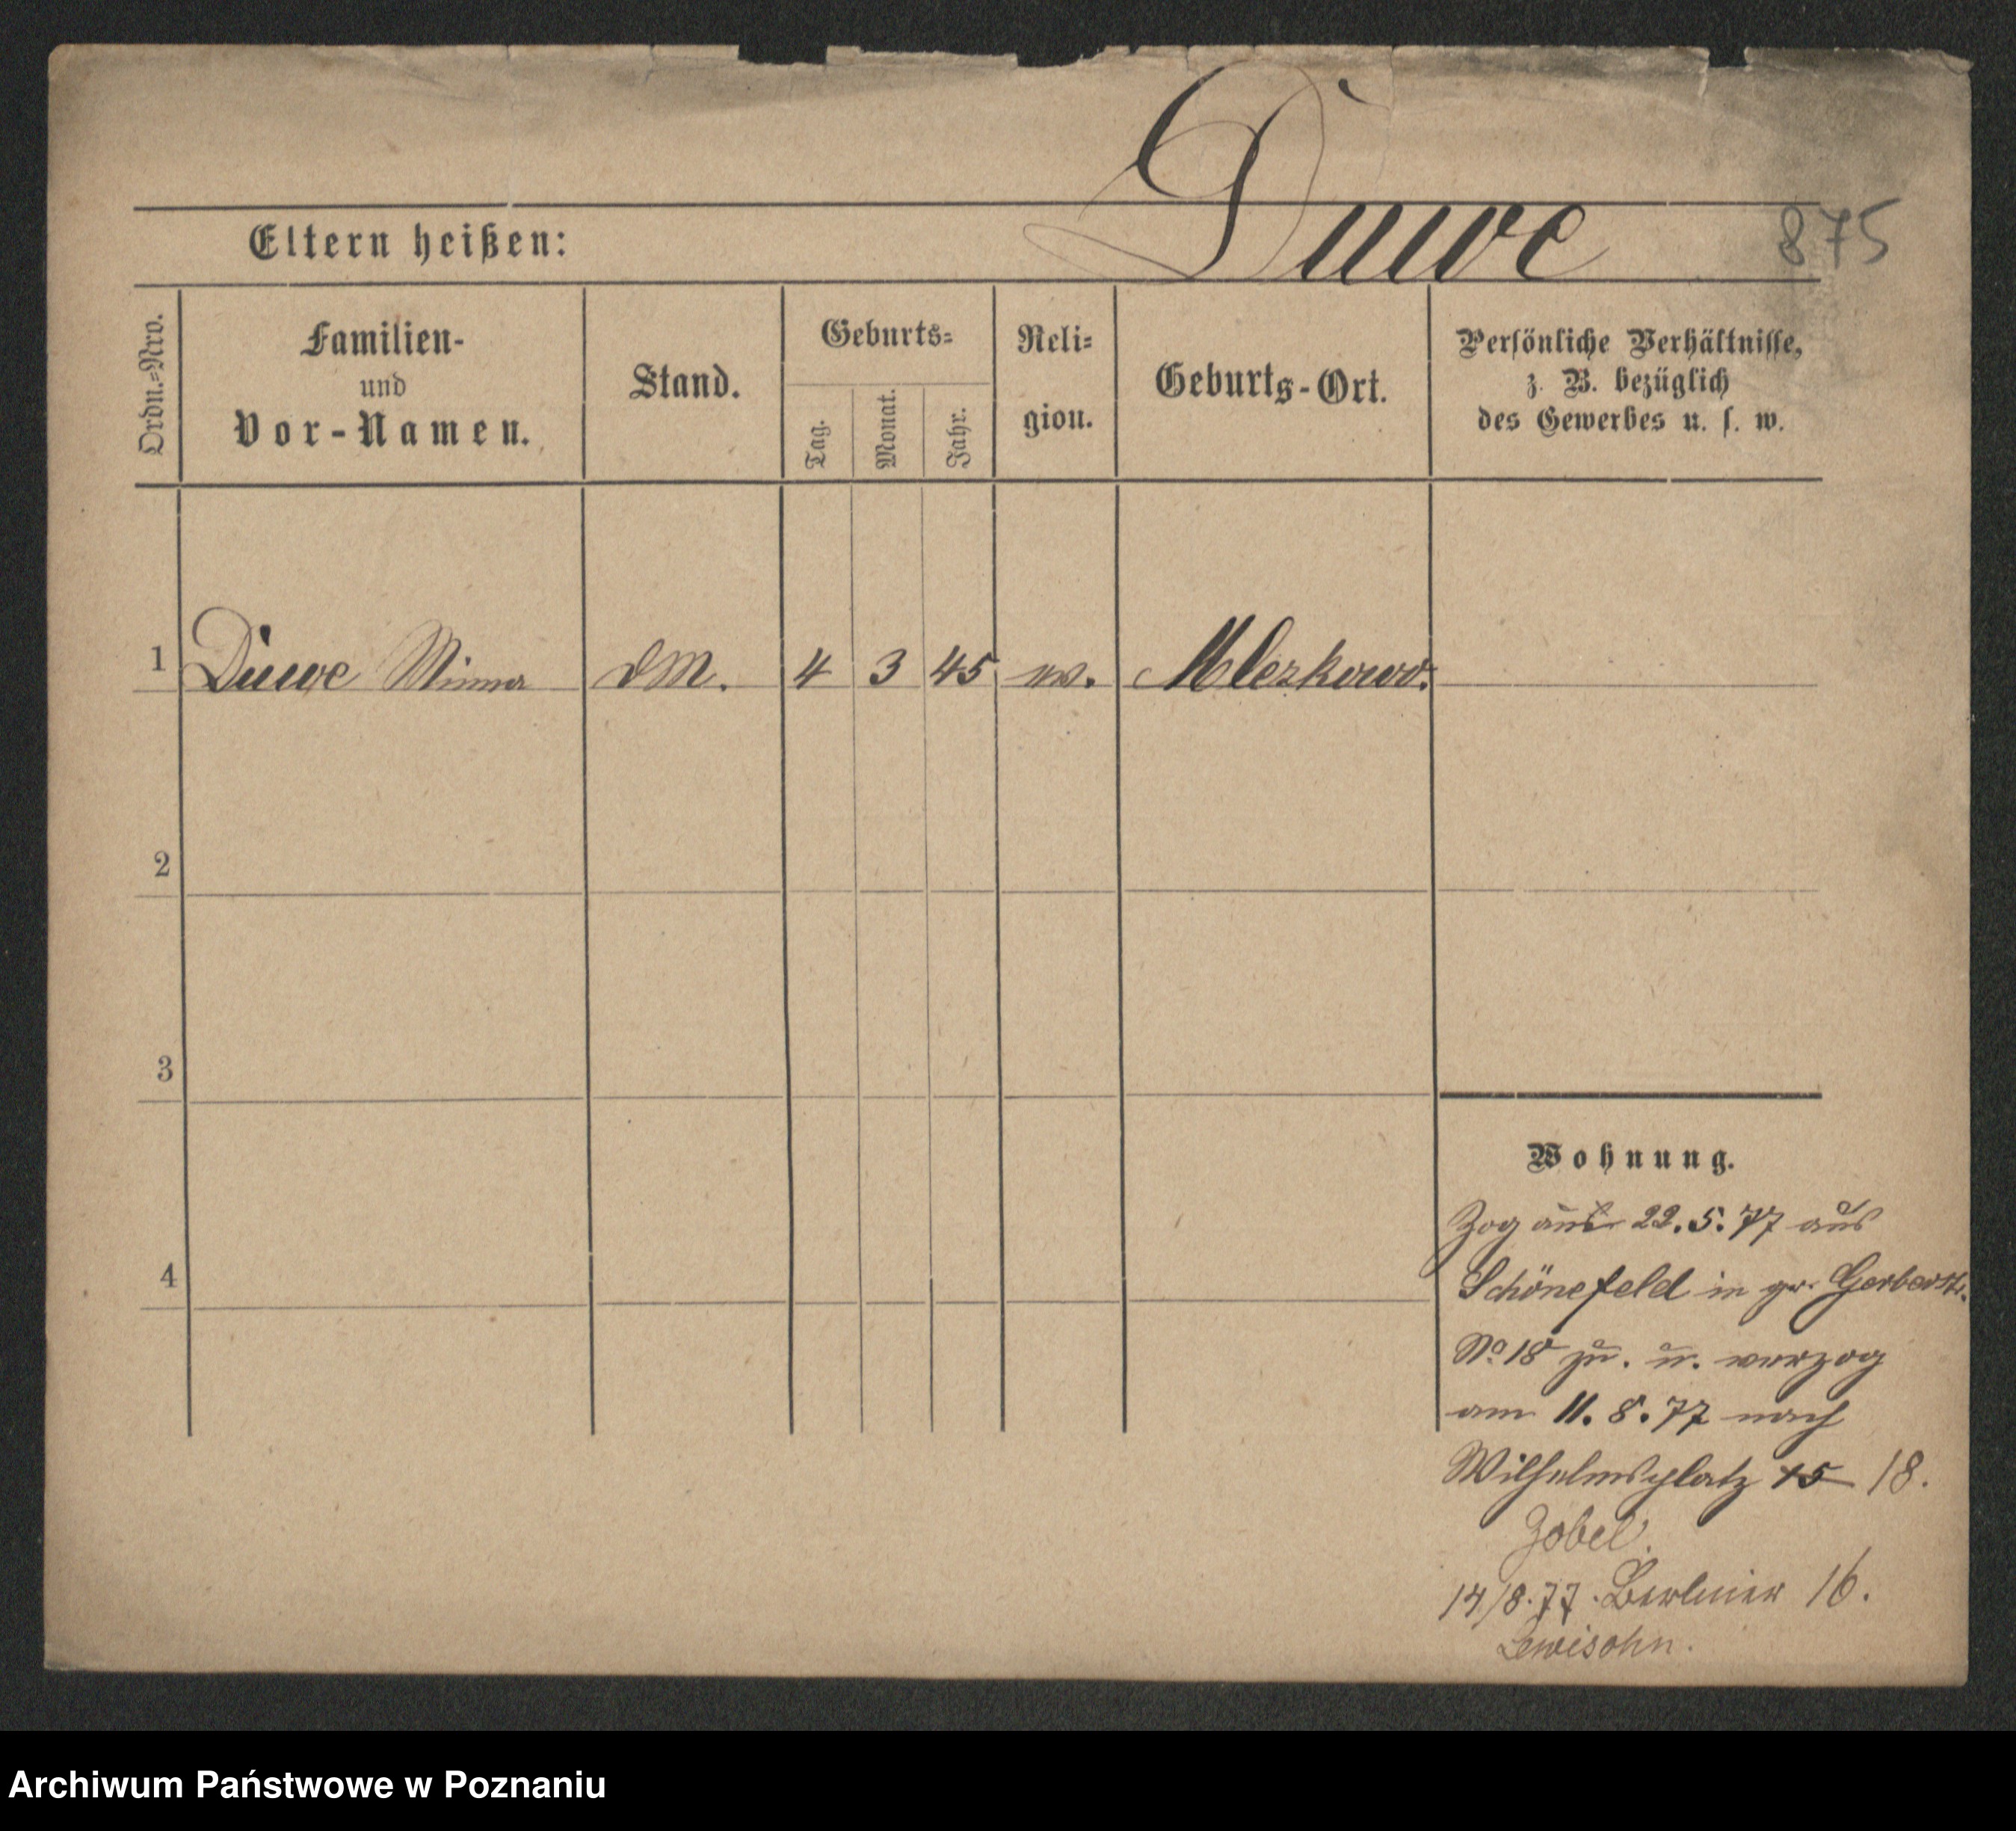 Düwe
875
Eltern heißen:
Ordn.=Nro.
Familien-
und
Vor-Namen.
Stand.
Geburts=
Tag.
Monat.
Jahr.
Reli=
gion.
Geburts-Ort.
Persönliche Verhältnisse,
z. B. bezüglich
des Gewerbes u. s. w.
1 Düwe Minna DM. 4 3 45 ev. Mlezkowo.
2
3
4
Wohnung.
Zog 22.5.77 aus
Schönefeld in gr. Gerberstr.
No 18 zu. u. verzog
am 11.8.77 nach
Wilhelmsplatz 15 18.
Zobel.
14/8.77. Berliner 16.
Lewisohn.
Archiwum Państwowe w Poznaniu